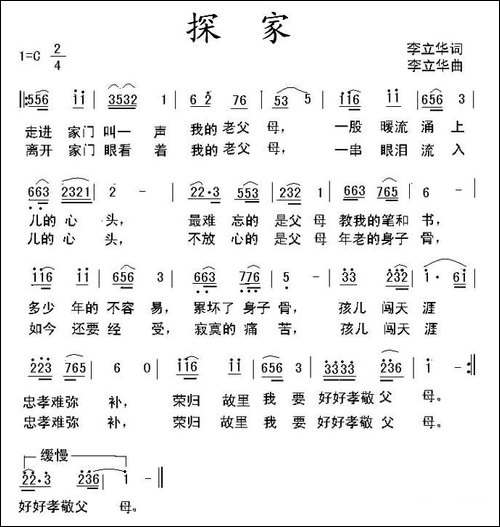 探 家
1=C 2/4
李立华词
李立华曲
556 ii 3532 1 | 6 2 76 | 53 5 | i i6 ii | 656 3
走进 家门 叫一 声 我的 老父 母， 一股 暖流 涌上
离开 家门 眼看 着 我的 老父 母， 一串 眼泪 流入
663 2321 | 2 - | 22·3 553 | 232 1 | 663 765 | 6 -
儿的 心 头， 最难 忘的 是父 母 教我的 笔和 书，
儿的 心 头， 不放 心的 是父 母 年老的 身子 骨，
i i6 ii | 656 3 | 663 776 | 5 - | 33 232 | i · 6i
多少 年的 不容 易， 累坏了 身子 骨， 孩儿 闯天 涯
如今 还要 经 受， 寂寞的 痛 苦， 孩儿 闯天 涯
223 765 | 6 0 | i i6 ii | 656 3 | 3333 236 | 1
忠孝难弥 补， 荣归 故里 我 要 好好孝敬 父 母。
忠孝难弥 补， 荣归 故里 我 要 好好孝敬 父 母。
缓慢
22·3 236 i -
好好孝敬父 母。